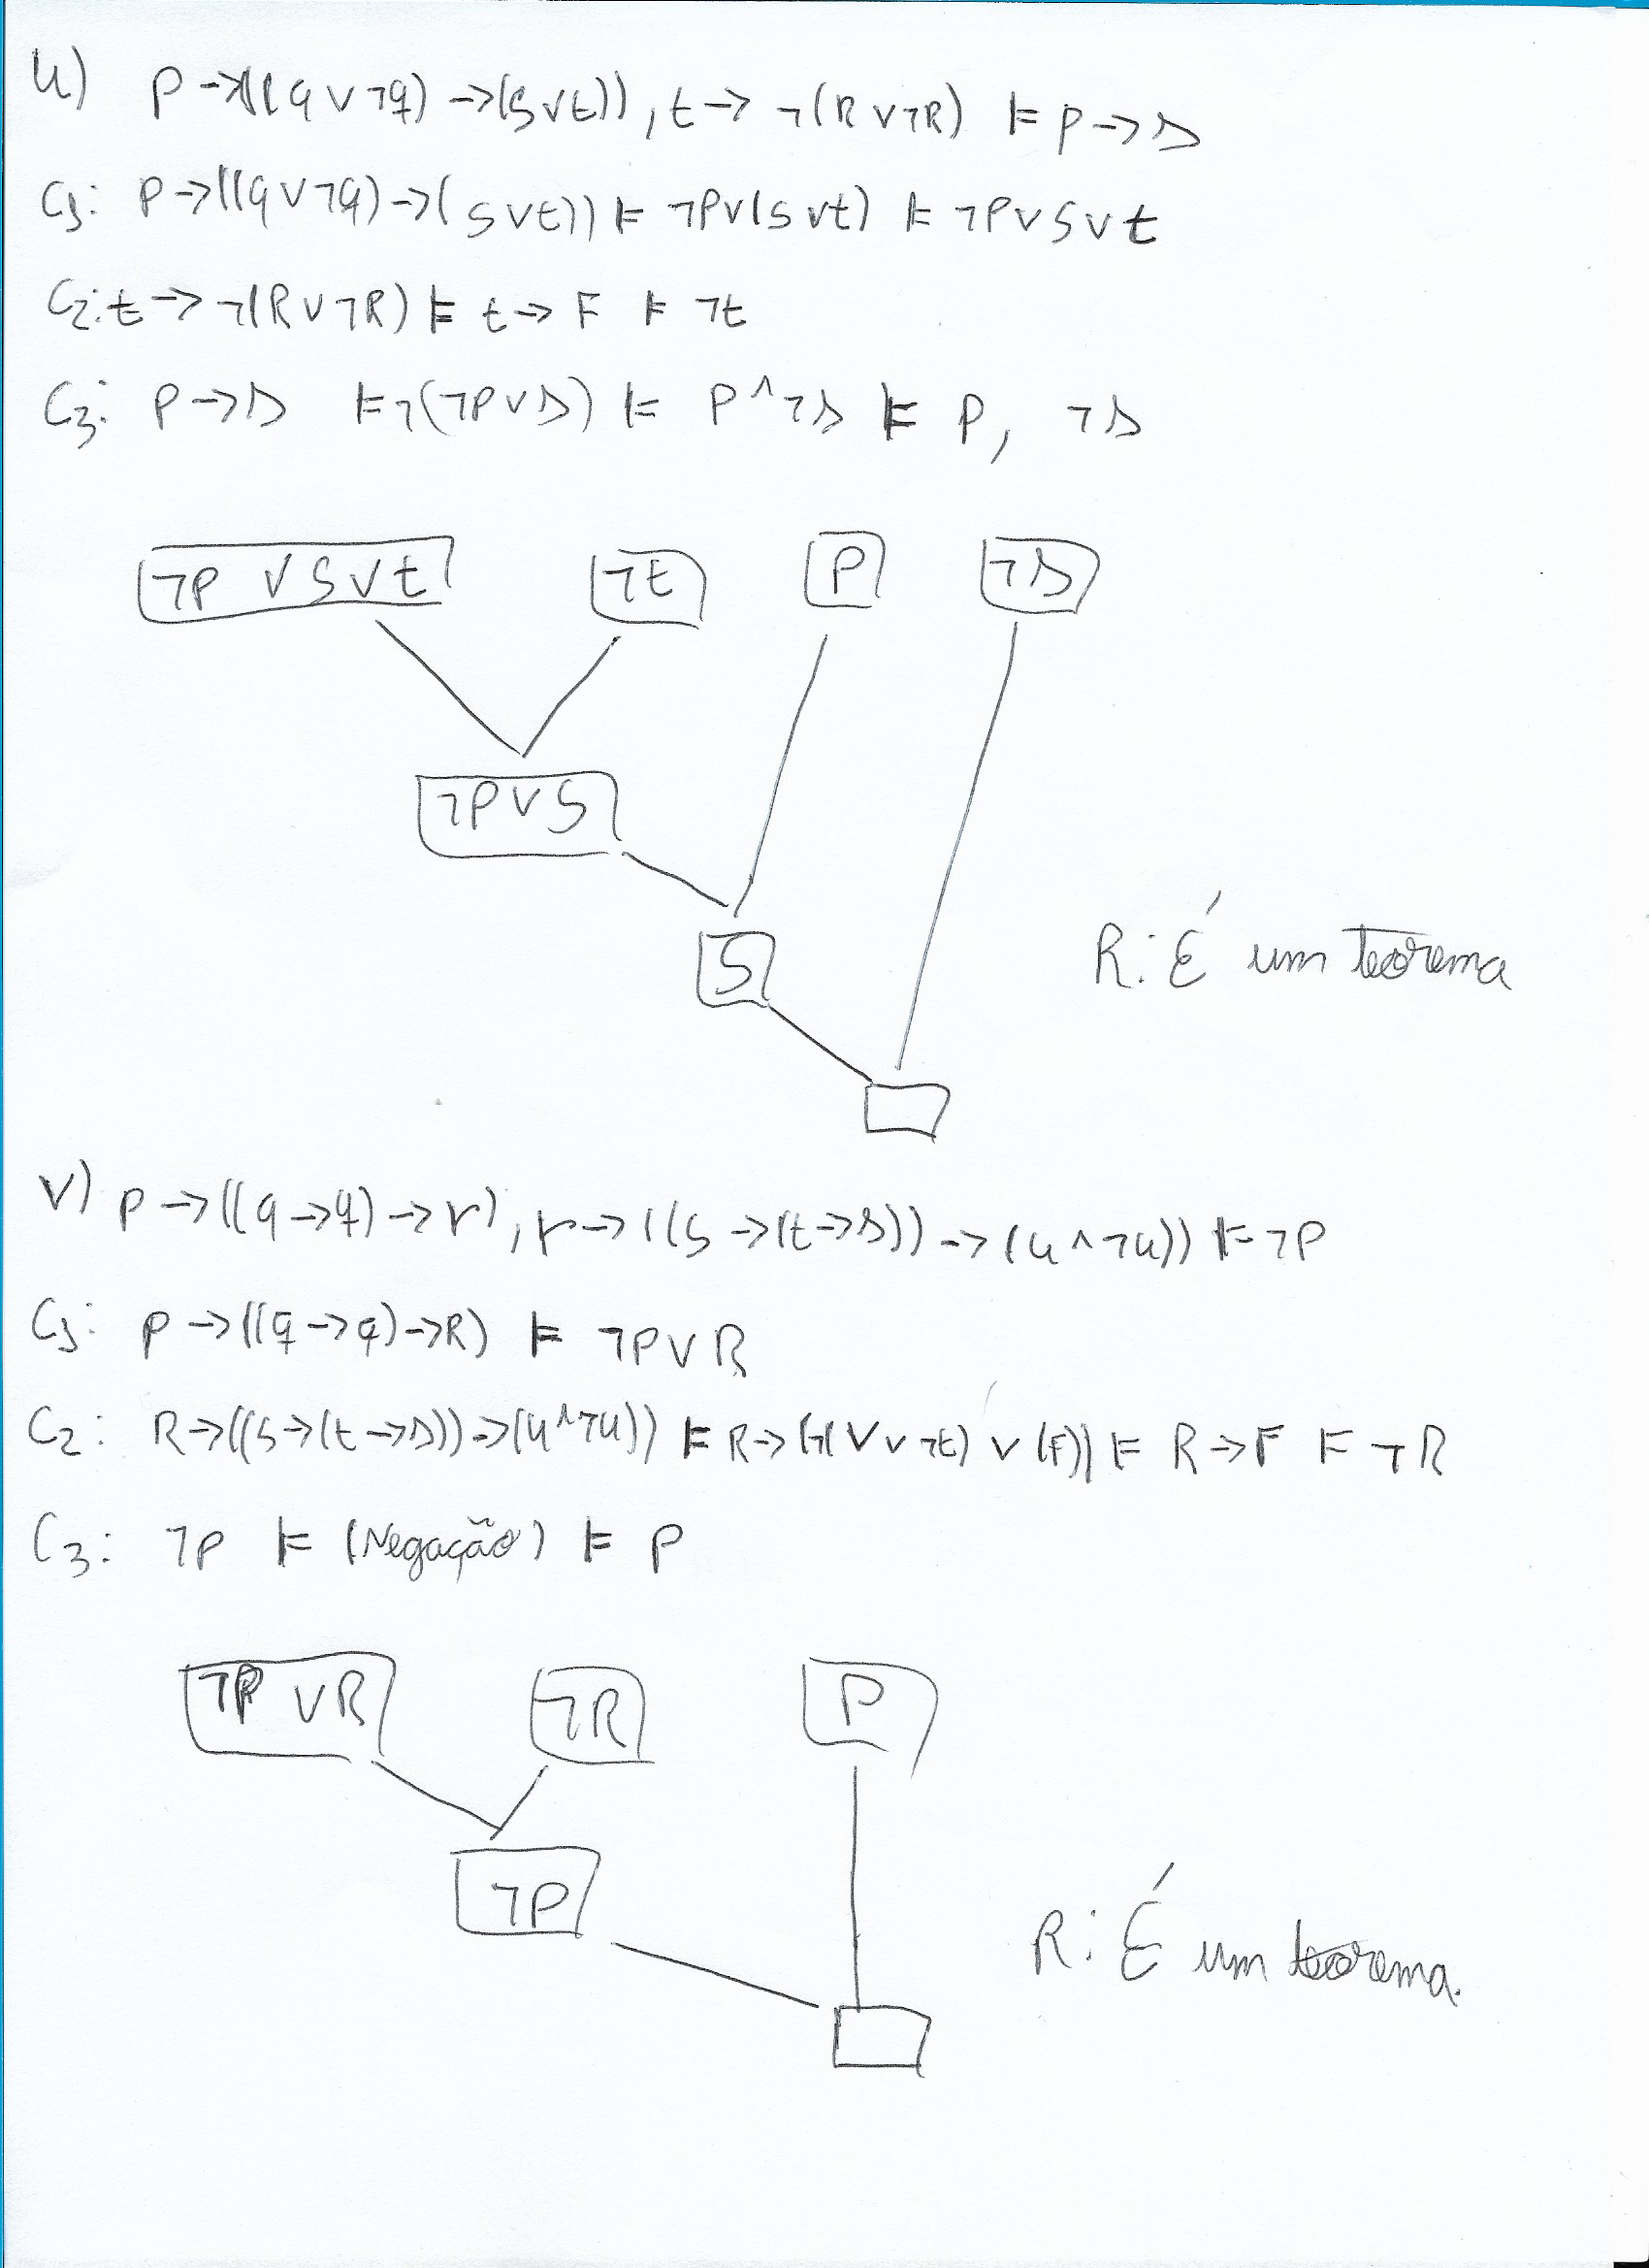 u) P→((q∨¬q)→(s∨t)), t→¬(R∨¬R) ⊨ p→s
C1: P→((q∨¬q)→(s∨t)) ⊨ ¬P∨(s∨t) ⊨ ¬P∨S∨t
C2: t→¬(R∨¬R) ⊨ t→F ⊨ ¬t
C3: P→s ⊨ ¬(¬P∨s) ⊨ P∧¬s ⊨ P, ¬s
¬P ∨ S ∨ t ¬t P ¬s
¬P∨S
S
R: É um teorema
v) P→((q→q)→r), r→((s→(t→s))→(u∧¬u)) ⊨ ¬P
C1: P→((q→q)→R) ⊨ ¬P∨R
C2: R→((s→(t→s))→(u∧¬u)) ⊨ R→(¬(V∨¬t)∨(F)) ⊨ R→F ⊨ ¬R
C3: ¬P ⊨ (Negação) ⊨ P
¬P ∨R ¬R P
¬P
R: É um teorema.